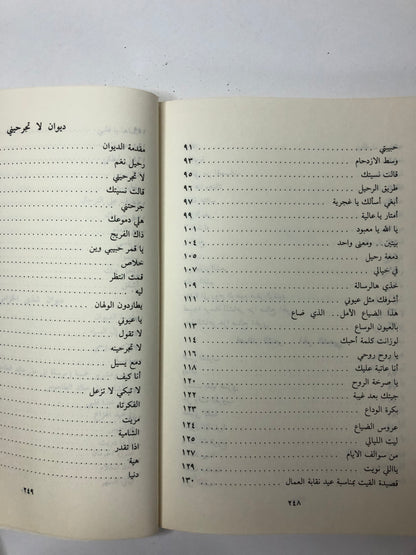 حبيبتي ٩١
وسط الازدحام ٩٣
قالت نسيتك ٩٥
طريق الرحيل ٩٦
أبغي أسألك يا غجرية ٩٧
أمثار يا عالية ٩٨
يا الله يا معبود ١٠١
بيتين .. ومعنى واحد ١٠٤
دمعة رحيل ١٠٥
في خيالي ١٠٧
تخذ هالرسالة ١٠٩
أشوفك مثل عيوني ١١١
هذا الضياع الأمل .. الذي ضاع
بالعيون الوساع ١١٣
لوزانت كلمة أحبك ١١٤
يا روح روحي ١١٦
أنا عاتبة عليك ١١٨
يا صرخة الروح ١٢٠
جيتك بعد غيبة ١٢٢
بكرة الوداع ١٢٣
عروس الضياع ١٢٤
ليت الليالي ١٢٥
من سوالف الايام ١٢٧
ياللي نويت ١٢٩
قصيدة القيت بمناسبة عيد نقابة العمال ١٣٠
٢٤٨
ديوان لا تجرحيني
مقدمة الديوان
رحيل نغم
لا تجرحيني
قالت نسيتك
جرحتني
هلي دموعك
ذاك الفريج
يا قمر حبيبي وين
خلاص
قمت انتظر
ليه
يطاردون الولهان
يا عيوني
لا تقول
لا تجرحينه
دمع يسيل
أنا كيف
لا تبكي لا تزعل
الفكرتاه
مريت
الشامية
اذا تقدر
هية
دنيا
٢٤٩